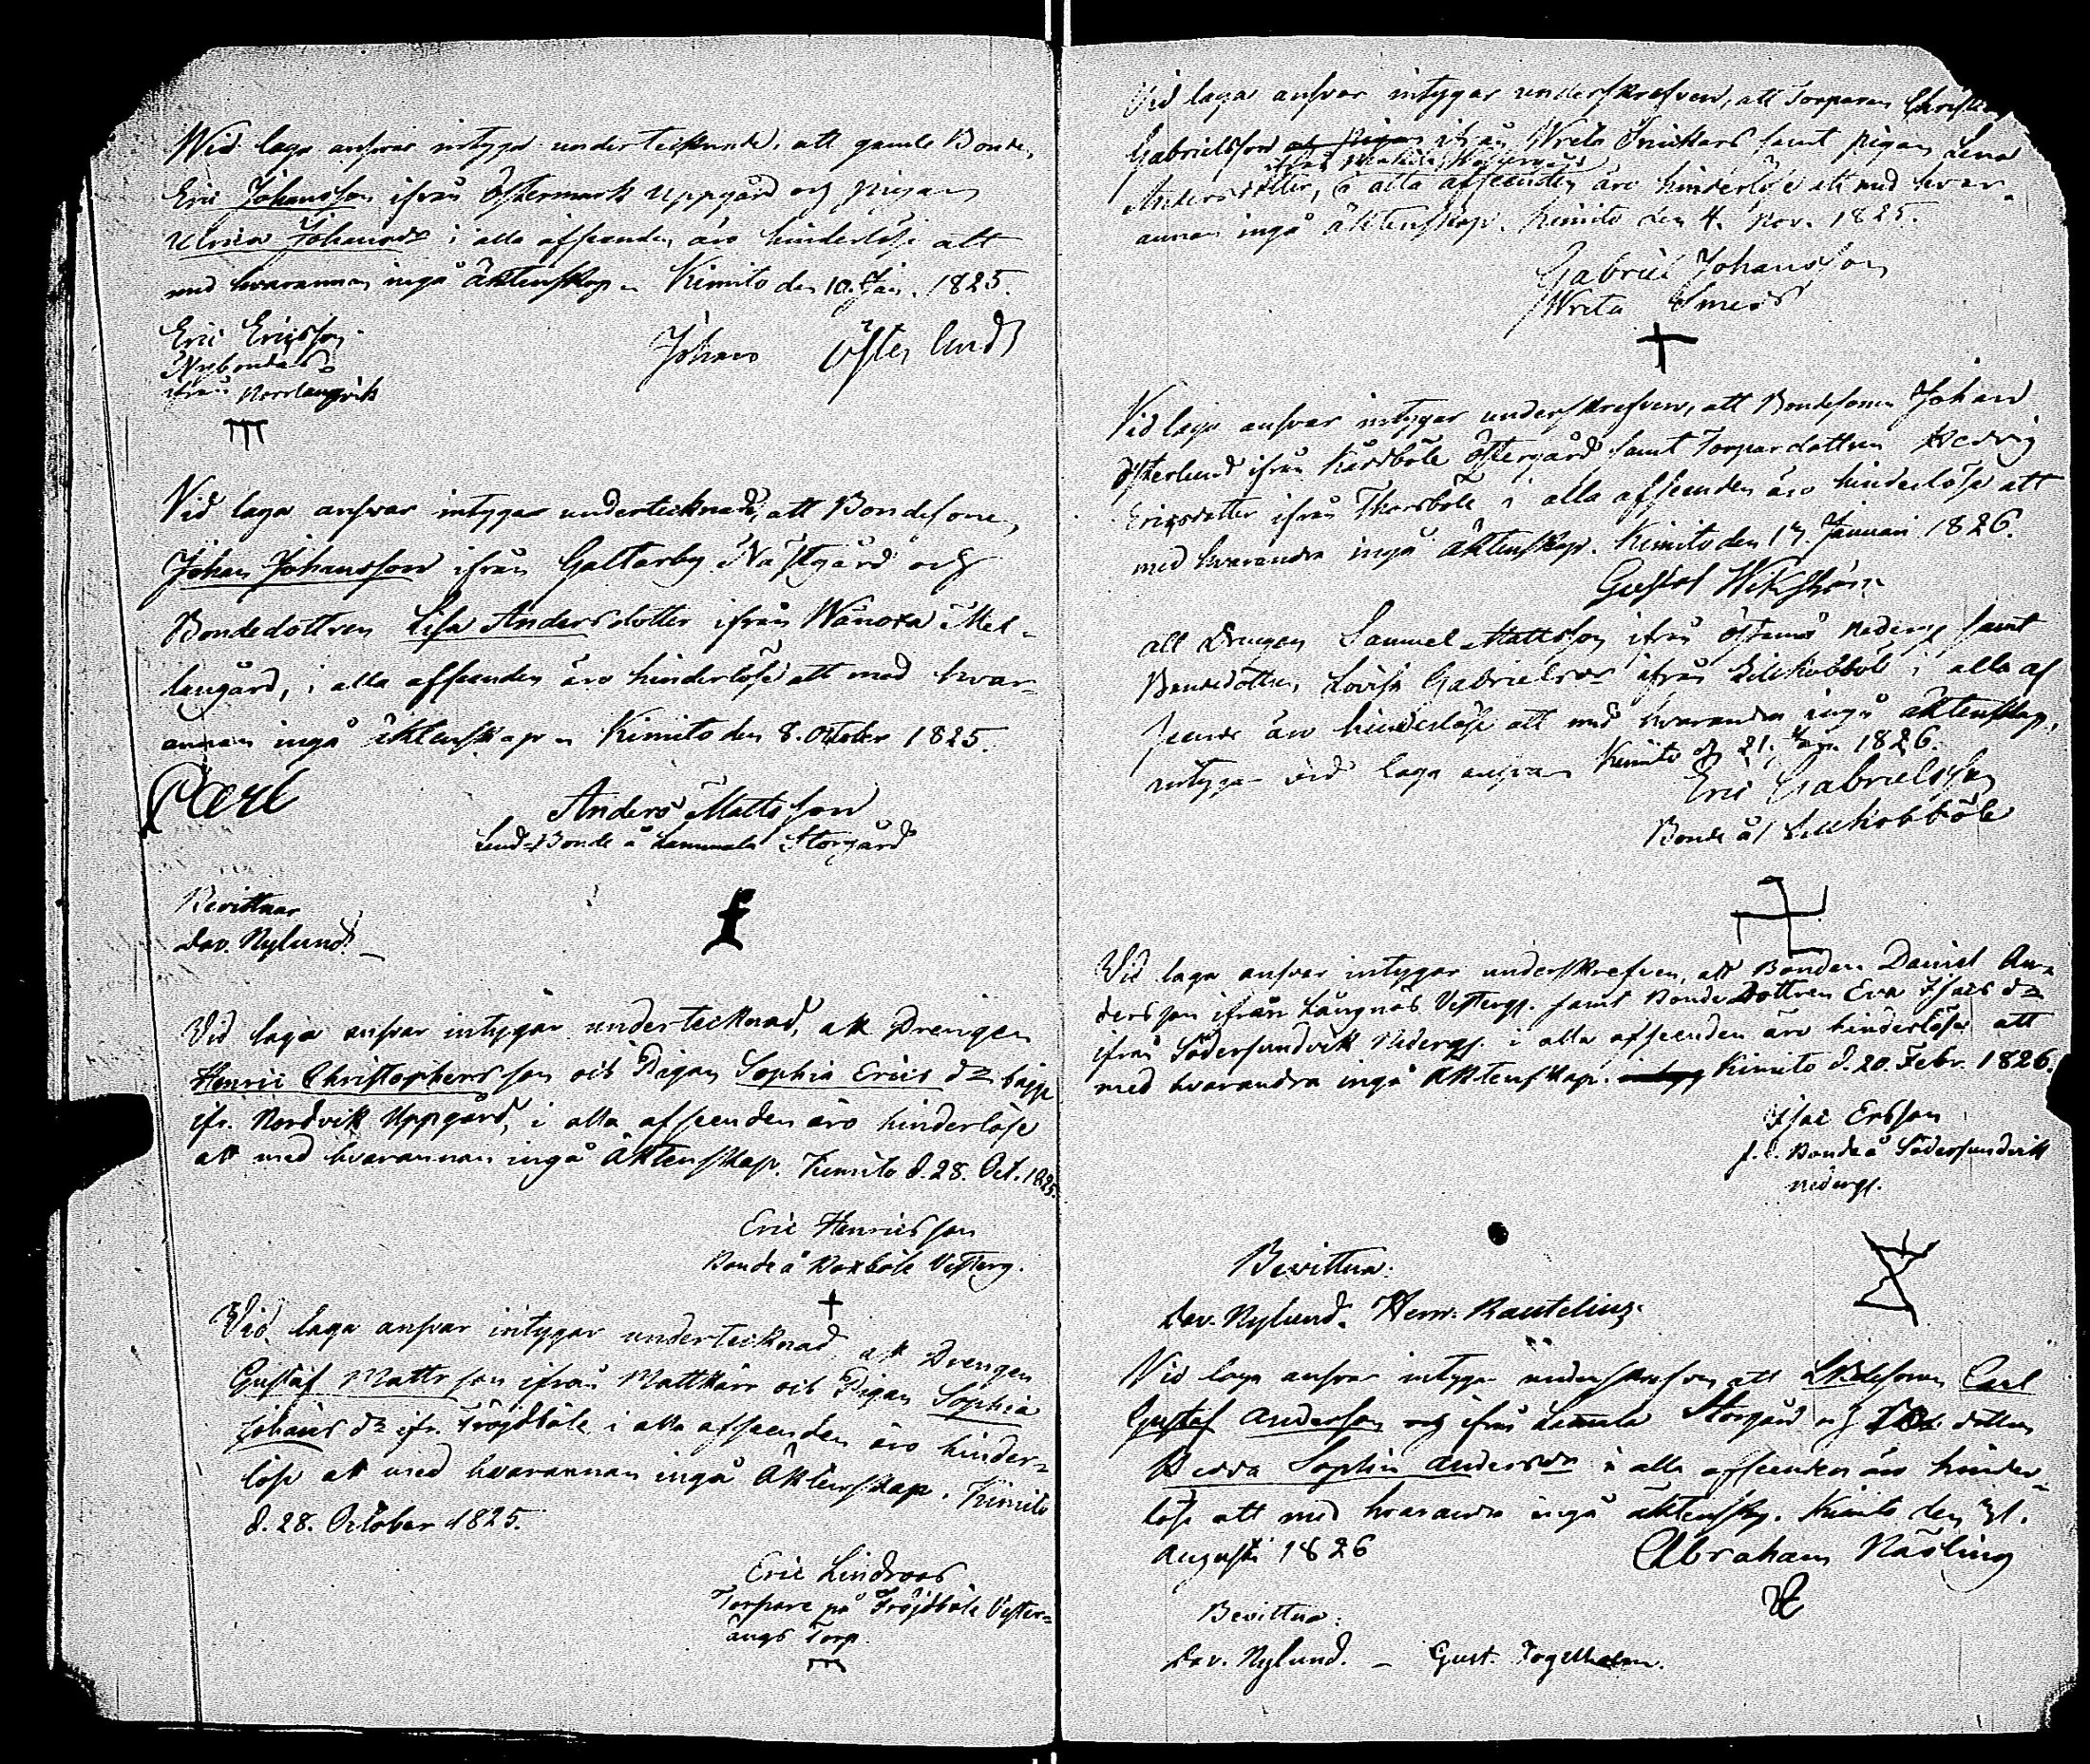 Wid laga ansvar intygar undertecknade, att gamle Bonden
Eric Johansson ifrån Östermark Uppgård och pigan
Ulrica Johansdr i alla afseenden äro hinderlöse att
med hvarannan ingå Äktenskap. Kimito den 10. Jan. 1825.
Eric Ericsson
Nybonde
ifrån Norrlangvik
Johan Österlund
Vid laga ansvar intygar undertecknad, att Bondesonen
Johan Johansson ifrån Galtarby Nästgård och
Bondedottren Lisa Andersdotter ifrån Wänoxa Mel-
langård, i alla afseenden äro hinderlöse att med hvar-
annan ingå äktenskap. Kimito den 8. October 1825.
Anders Mattsson
Bonde å Lammala Storgård
Bevittnar
Dav. Nylund.
Vid laga ansvar intygar undertecknad, att Drengen
Henric Christophersson och Pigan Sophia Erics dr bägge
ifr. Nordvik Uppgård, i alla afseenden äro hinderlöse
att med hvarannan ingå Äktenskap. Kimito d. 28. Oct. 1825.
Eric Henricsson
Bonde å Roxböle Vesterg.
Vid laga ansvar intygar undertecknad, att Drengen
Gustaf Mattsson ifrån Mattkärr och Pigan Sophia
Johans dr ifr. Fröjdböle i alla afseenden äro hinder-
löse att med hvarannan ingå Äktenskap. Kimito
d. 28. October 1825.
Eric Lindroos
Torpare på Fröjdböle Vester-
ängs Torp.
Vid laga ansvar intygar underskrefven, att Torparen
Gabrielsson och Pigan ifrån Wreta Snickars samt pigan Lena
Andersdotter, i alla afseenden äro hinderlöse att med hvar-
annan ingå äktenskap. Kimito den 4. Nov. 1825.
Gabriel Johansson
Wreta Smeds
Vid laga ansvar intygar underskrefven, att Bondesonen Johan
Österlund ifrån Kårsböle Östergård samt Torpardottren Hedvig
Ericsdotter ifrån Thorsböle i alla afseenden äro hinderlöse att
med hvarandra ingå äktenskap. Kimito den 17. Januari 1826.
Gustaf Wikström
att Drengen Samuel Mattsson ifrån Nederg. samt
Bondedottren Lovisa Gabrielsdr ifrån i alla af-
seende äro hinderlöse att med hvarandra ingå äktenskap,
intygar vid laga ansvar Kimito d 21. Jan. 1826.
Eric Gabrielsson
Bonde å
Vid laga ansvar intygar underskrefven, att Bonden Daniel An-
dersson ifrån Långnäs Vesterg. samt Bonde Dottren Eva Isacs dr
ifrån Södersundvik Nederg. i alla afseenden äro hinderlöse att
med hvarandra ingå Äktenskap. Kimito d. 20. Febr. 1826.
Isac Ersson
f. d. Bonde å Södersundvik
Nederg.
Bevittna:
Dav. Nylund. Henr. Rautelius.
Vid laga ansvar intygar underskrefven att Carl
Gustaf Andersson ifrån Lammala Storgård och dottren
Hedda Sophia Andersdr i alla afseenden äro hinder-
löse att med hvarandra ingå äktenskap. Kimito den 31.
Augusti 1826
Abraham Näsling
Bevittna:
Dav. Nylund. – Gust. Fogelholm.